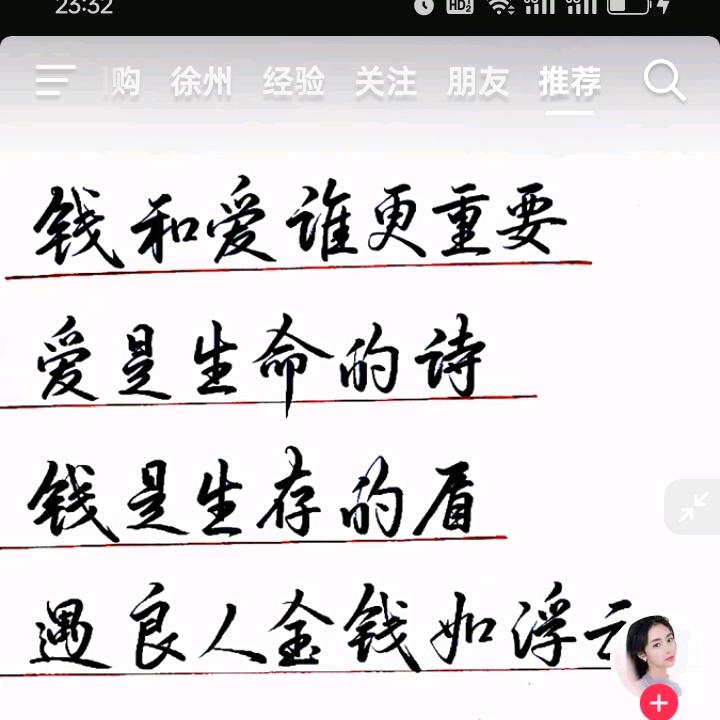 23:32 HD2
购 徐州 经验 关注 朋友 推荐
钱和爱谁更重要
爱是生命的诗
钱是生存的盾
遇良人金钱如浮云